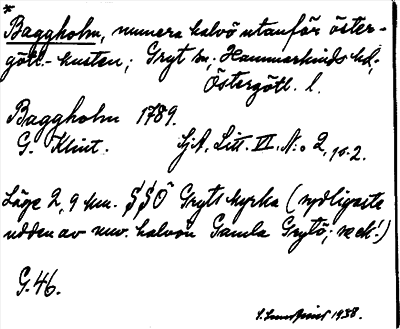 *
Baggholm, numera halvö utanför öster-
götl.-kusten; Gryt sn; Hammarkinds hd,
Östergötl. l.
Baggholm 1789.
G. Klint. Sjk. Litt. VI. N:o 2, p. 2.
Läge 2,9 km. SSÖ Gryts kyrka (sydligaste
udden av nuv. halvön Gamla Grytö; se ek!)
G. 46.
1938.